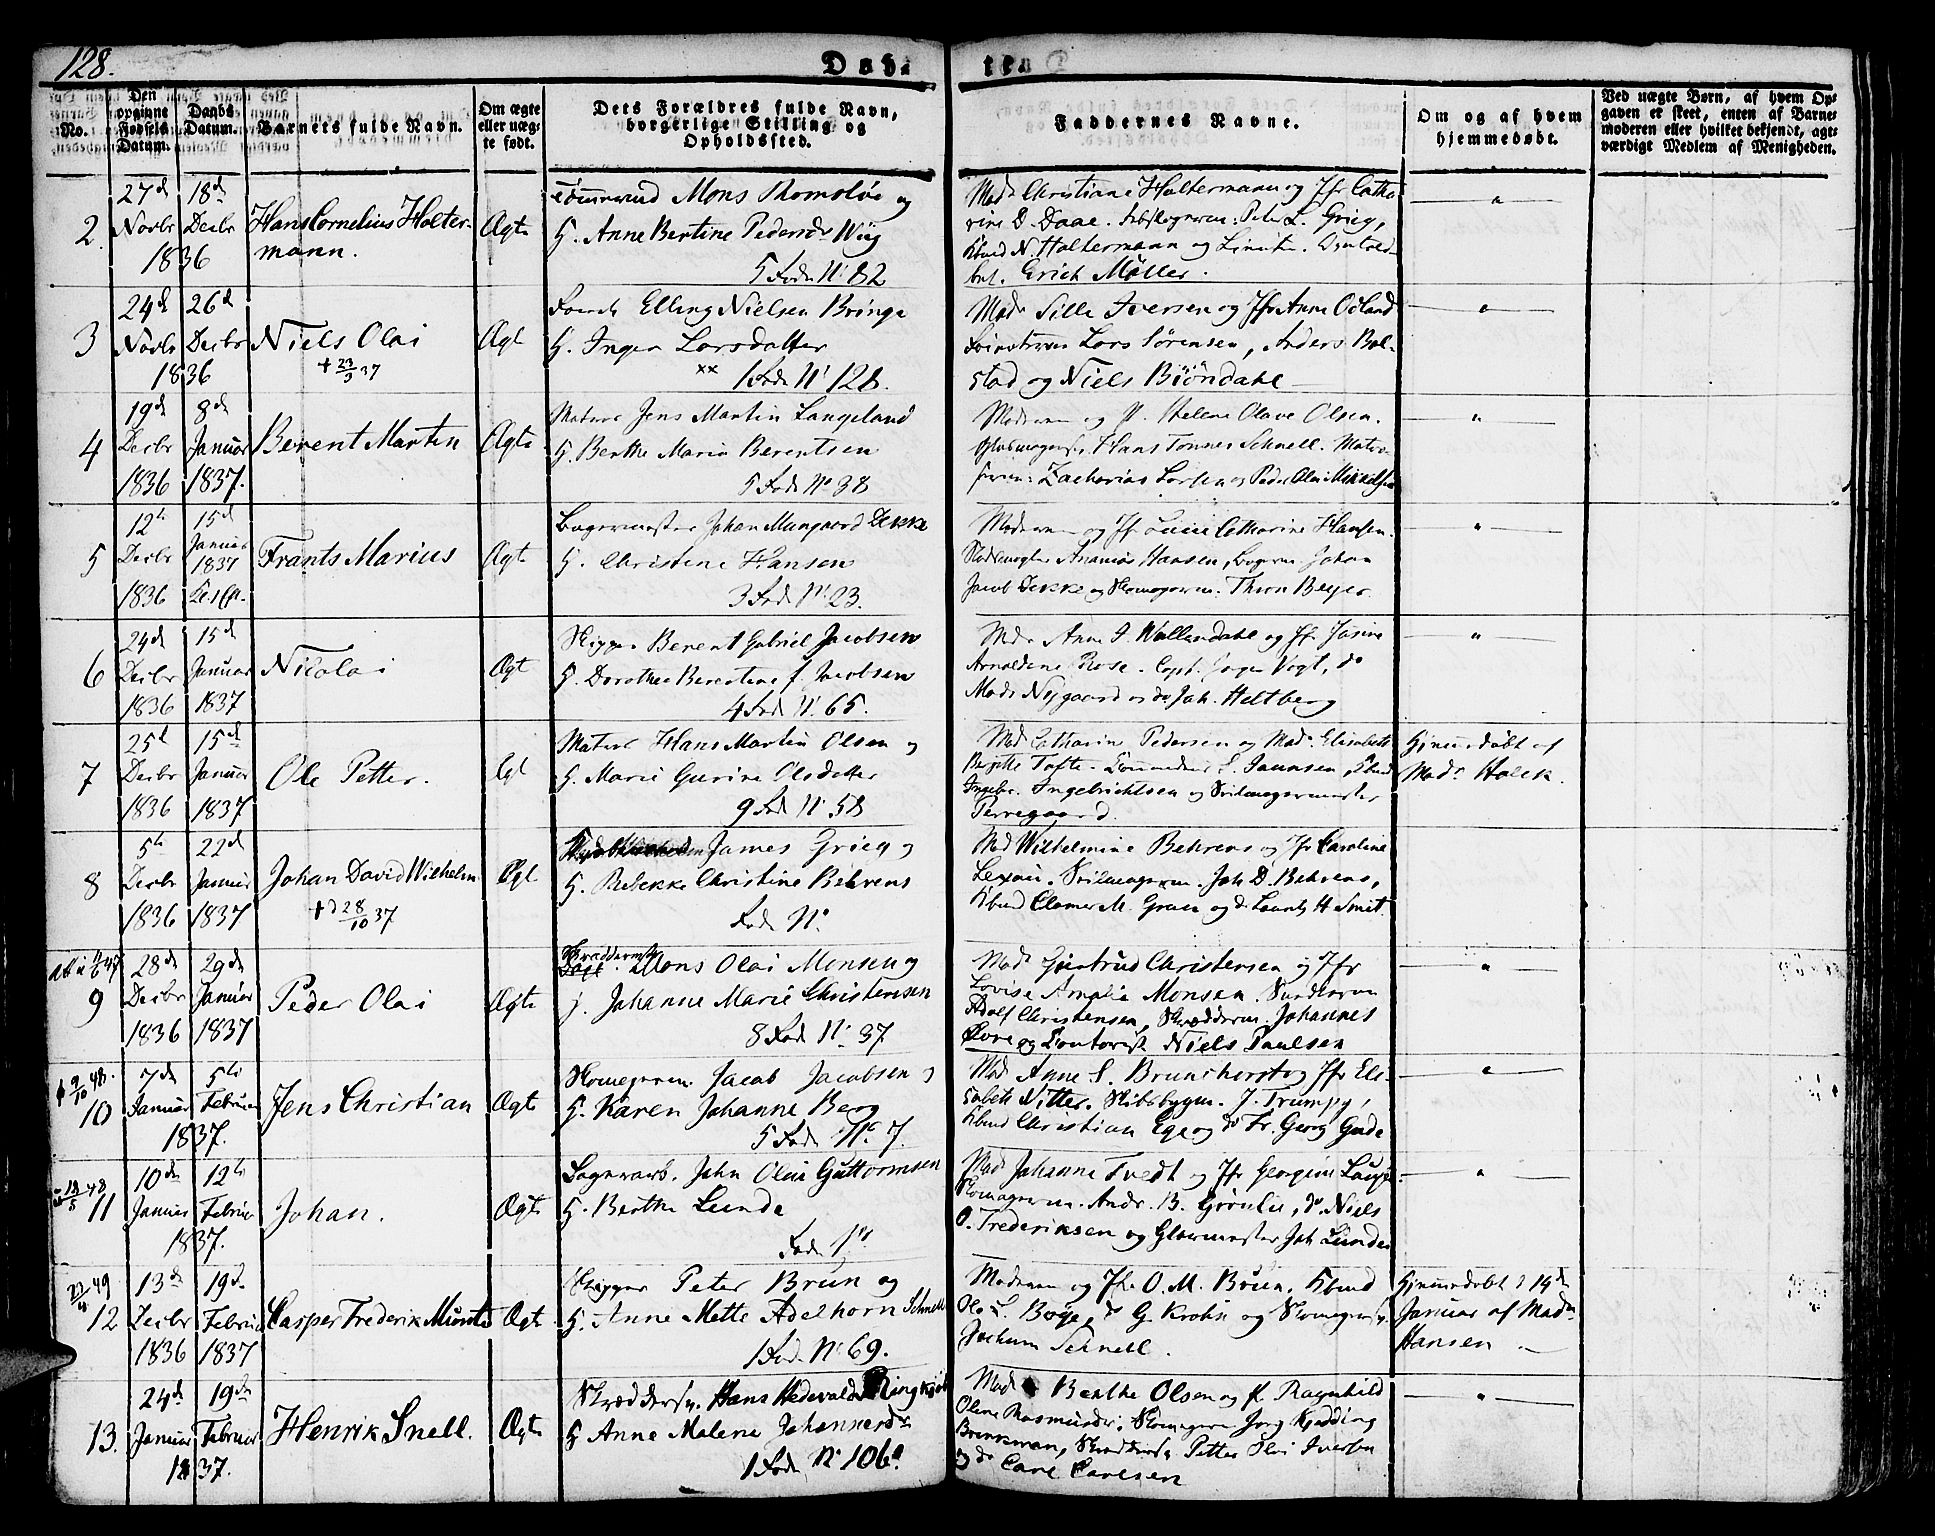 128.
Døbte
No.
Den opgivne Fødsels Datum.
Daabs Datum.
Barnets fulde Navn.
Om ægte eller uægte født.
Dets Forældres fulde Navn, borgerlige Stilling og Opholdssted.
Faddernes Navne.
Om og af hvem hjemmedøbt.
Ved uægte Børn, af hvem Opgaven er skeet, enten af Barnemoderen eller hvilket bekjendt, agtværdigt Medlem af Menigheden.
2. 27de Novbr 18de Decbr 1836
Hans Cornelius Holtermann.
Ægte
Mons Thomsløe og
H. Anne Bertine Pedersdr Wiig
5 Fode No 82
Mad. Christiane Holtermann og Jfr Cathrine D. Daae. Peter L. Grieg,
N. Holtermann og
Erich Møller.
3 24d Novbr 26d Decbr 1836
Niels Olai
+ 23/3 37
Ægt
Elling Nielsen Bringe
H. Inger Larsdatter
xx 1 Fode No 128.
Mad. Sille Iversen og Jfr Anne Odland
Lars Sørensen, Anders Bolstad og Niels Biöndahl
4 19de Decbr 1836 8de Januar 1837.
Berent Martin
Ægte
Matros Jens Martin Langeland
H. Berthe Maria Berentsen
5 Fode No 38
Moderen og J. Helene Olave Olsen.
Hans Tønnes Schnell. Matroserne: Zacharias Larsen og Peder Olai Mikkelsen
5 12te Decbr 1836 15d Januar 1837
Frants Marius
Ægte
Bagermester Johan Mungaard Dekke
H. Christine Hansen
3 Fode No 23.
Moderen og Jfr Lucie Catharine Hansen.
Ananias Hansen, Bagerm Johan
Jacob Dekke og Skomagerm. Thron Beyer.
6 24de Decbr 1836 15d Januar 1837
Nicolai
Ægt
Skipper Berent Gabriel Jacobsen
H. Dorothea Berentine f. Jacobsen
4 Fode No 65.
Md. Anne I. Wallendahl og Jfr Josine
Arnoldine Rose. Capt. Jørgen Vogt, do
Mads Nygaard og do Joh. Heltberg
7 25d Decbr 1836 15de Januar 1837
Ole Petter.
Ægt
Matros Hans Martin Olsen og
H. Marie Gurine Olsdatter
9 Fode No 58
Mad Catharine Pedersen og Mad. Elisabeth
Birgitte Tofte. S. Jaunsen,
Ingebr. Ingebrichtsen og Seilmagermester
Perregaard.
Hjemmedøbt af
Mad. Holck.
8 5te Decbr 1836 22d Januar 1837
Johan David Wilhelm
+ d 28/10 37
Ægt
James Grieg og
H. Rebekke Christine Behrens
Fode No
Mad Wilhelmine Behrens og Jfr Caroline
Lexau. Seilmagerm. Joh D. Behrens,
Kbmd Clamer M. Gran og do Lauritz H Smit.
9 28de Decbr 1836 29de Januar 1837
Peder Olai
Ægte
Skrædderm Mons Olai Monsen og
H. Johanne Marie Christensen
8 Fode No 37
Mad. Giertrud Christensen og Jfr
Lovise Amalie Monsen.
Adolf Christensen, Skrædderm. Johannes
og Contorist Niels Paulsen
9/10 48.
10 7de Januar 5te Februar 1837.
Jens Christian
Ægte
Skomagerm. Jacob Jacobsen og
H. Karen Johanne Berg
5 Fode No 7.
Mad Anne S. Brunchorst og Jfr Elisabeth Nitter. Skibsbygm. J. Trumpy,
Kbmd Christian Ege og do Fr. Georg Gade
48
11 10de Januar 12te Februar 1837.
Johan.
Ægte
John Olai Guttormsen
H. Berthe Lunde
Fode 1ste
Mad Johanne Tvedt og Jfr Georgine
Skomagerm. Andr. B. do Niels
O. Frederiksen og Glarmester Joh Lunde
23/4 49
12 13de Decbr 1836 19d Februar 1837
Casper Frederik Münte
Ægte
Skipper Peter Brun og
H. Anne Mette Adelhorn Schnell
1 Fode No 69.
Moderen og Jfr O. M. Bøien, Kbmd
Ole L. Bøye, do G. Krohn og
Jochum Schnell.
Hjemmedøbt d 14de
Januar af Madm
Hansen
13. 24de Januar 19de Februar 1837.
Henrik Snell.
Ægte
Skræddersv. Hans Hedevald Ringkjøb
H Anne Malene Johannesdr
1 Fode No 106a
Mad Berthe Olsen og J. Ragnhild
Oline Rasmusdr. Skomagerm Jørg Kjødding
Brinkman, Petter Olai Iversen
og do Carl Carlsen